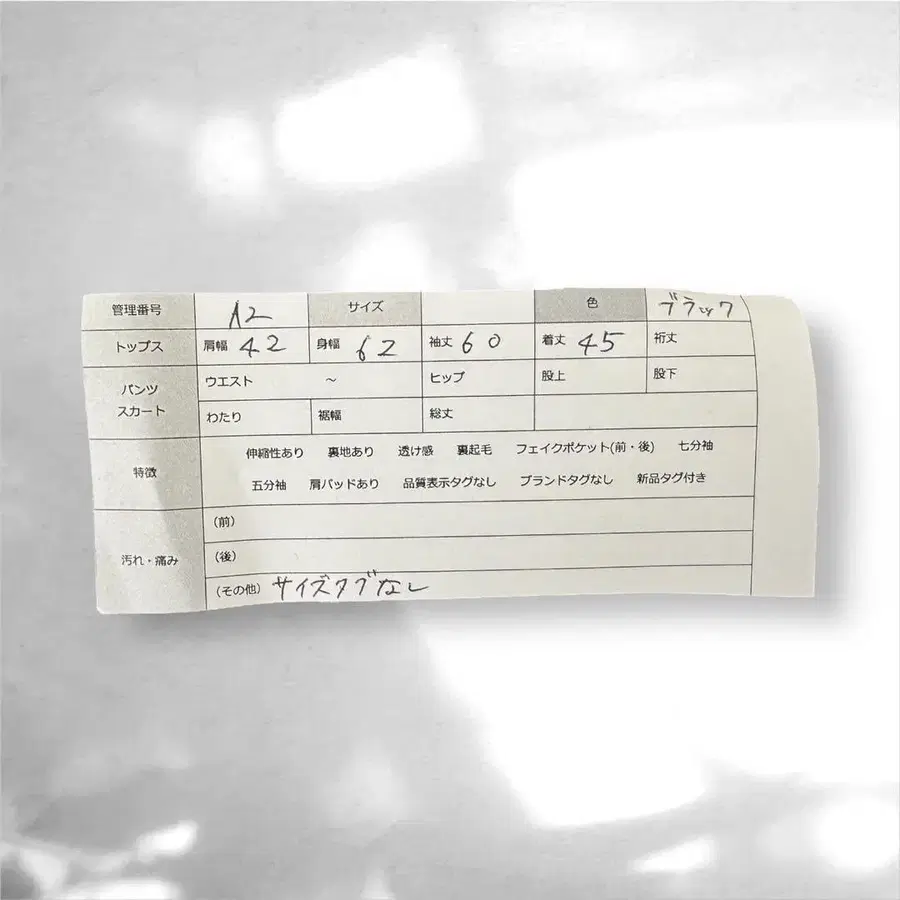 管理番号 12 サイズ 色 ブラック
トップス 肩幅 42 身幅 62 袖丈 60 着丈 45 裄丈
パンツ スカート
ウエスト ~ ヒップ 股上 股下
わたり 裾幅 総丈
特徴
伸縮性あり 裏地あり 透け感 裏起毛 フェイクポケット(前・後) 七分袖
五分袖 肩パッドあり 品質表示タグなし ブランドタグなし 新品タグ付き
汚れ・痛み
(前)
(後)
(その他) サイズタグなし